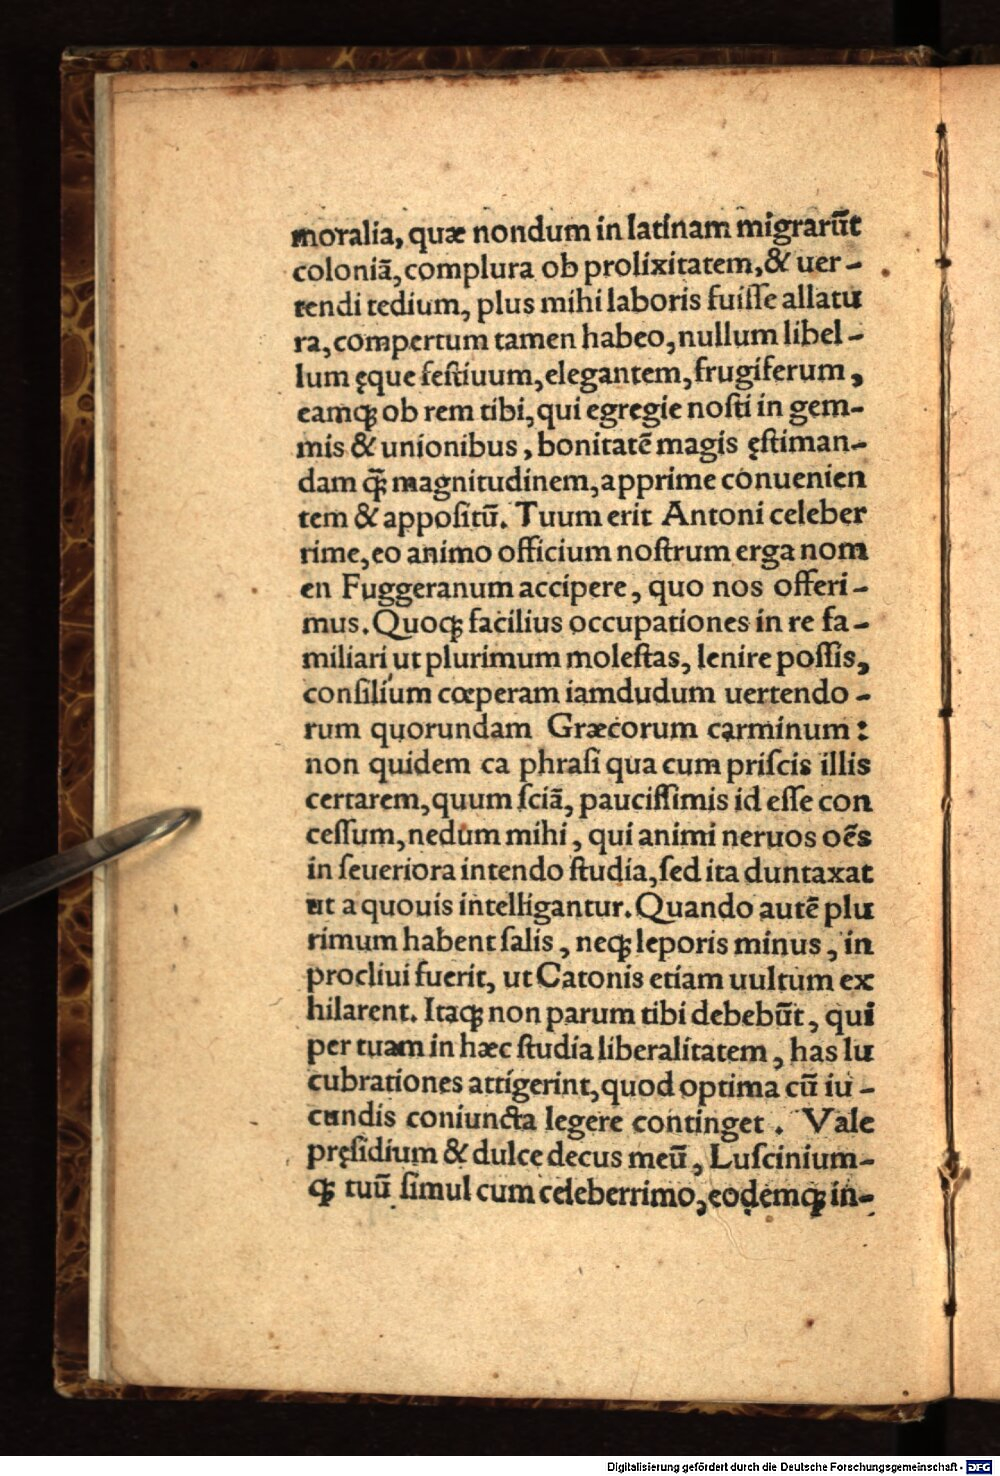 moralia, quæ nondum in latinam migrarūt
coloniā, complura ob prolixitatem, & uer-
tendi tedium, plus mihi laboris fuiſſe allatu
ra, compertum tamen habeo, nullum libel-
lum ęque feſtiuum, elegantem, frugiferum,
eamqꝫ ob rem tibi, qui egregie noſti in gem-
mis & unionibus, bonitatē magis ęſtiman-
dam q̄ꝫ magnitudinem, apprime conuenien
tem & appoſitū. Tuum erit Antoni celeber
rime, eo animo officium noſtrum erga nom
en Fuggeranum accipere, quo nos offeri-
mus. Quoqꝫ facilius occupationes in re fa-
miliari ut plurimum moleſtas, lenire poſſis,
conſilium cœperam iamdudum uertendo-
rum quorundam Græcorum carminum:
non quidem ea phraſi qua cum priſcis illis
certarem, quum ſciā, pauciſſimis id eſſe con
ceſſum, nedum mihi, qui animi neruos oēs
in ſeueriora intendo ſtudia, ſed ita duntaxat
ut a quouis intelligantur. Quando autē plu
rimum habent ſalis, neqꝫ leporis minus, in
procliui fuerit, ut Catonis etiam uultum ex
hilarent. Itaqꝫ non parum tibi debebūt, qui
per tuam in hæc ſtudia liberalitatem, has lu
cubrationes attigerint, quod optima cū iu-
cundis coniuncta legere continget. Vale
pręſidium & dulce decus meū, Luſcinium-
qꝫ tuū ſimul cum celeberrimo, eodemqꝫ in-
Digitalisierung gefördert durch die Deutsche Forschungsgemeinschaft - DFG